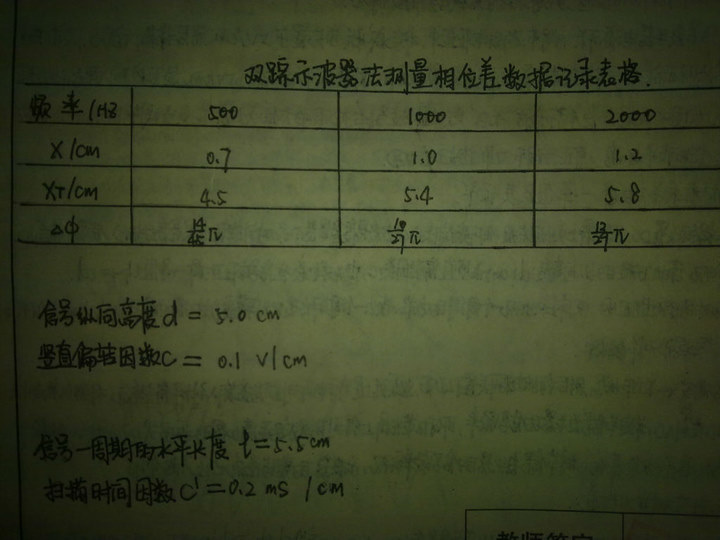 双踪示波器法测量相位差数据记录表格.
频率/HB 500 1000 2000
X/cm 0.7 1.0 1.2
XT/cm 4.5 5.4 5.8
ΔΦ 14/45π 10/27π 12/29π
信号纵向高度d = 5.0 cm
竖直偏转因数C = 0.1 V/cm
信号一周期的水平长度 l=5.5cm
扫描时间因数C'=0.2 ms /cm